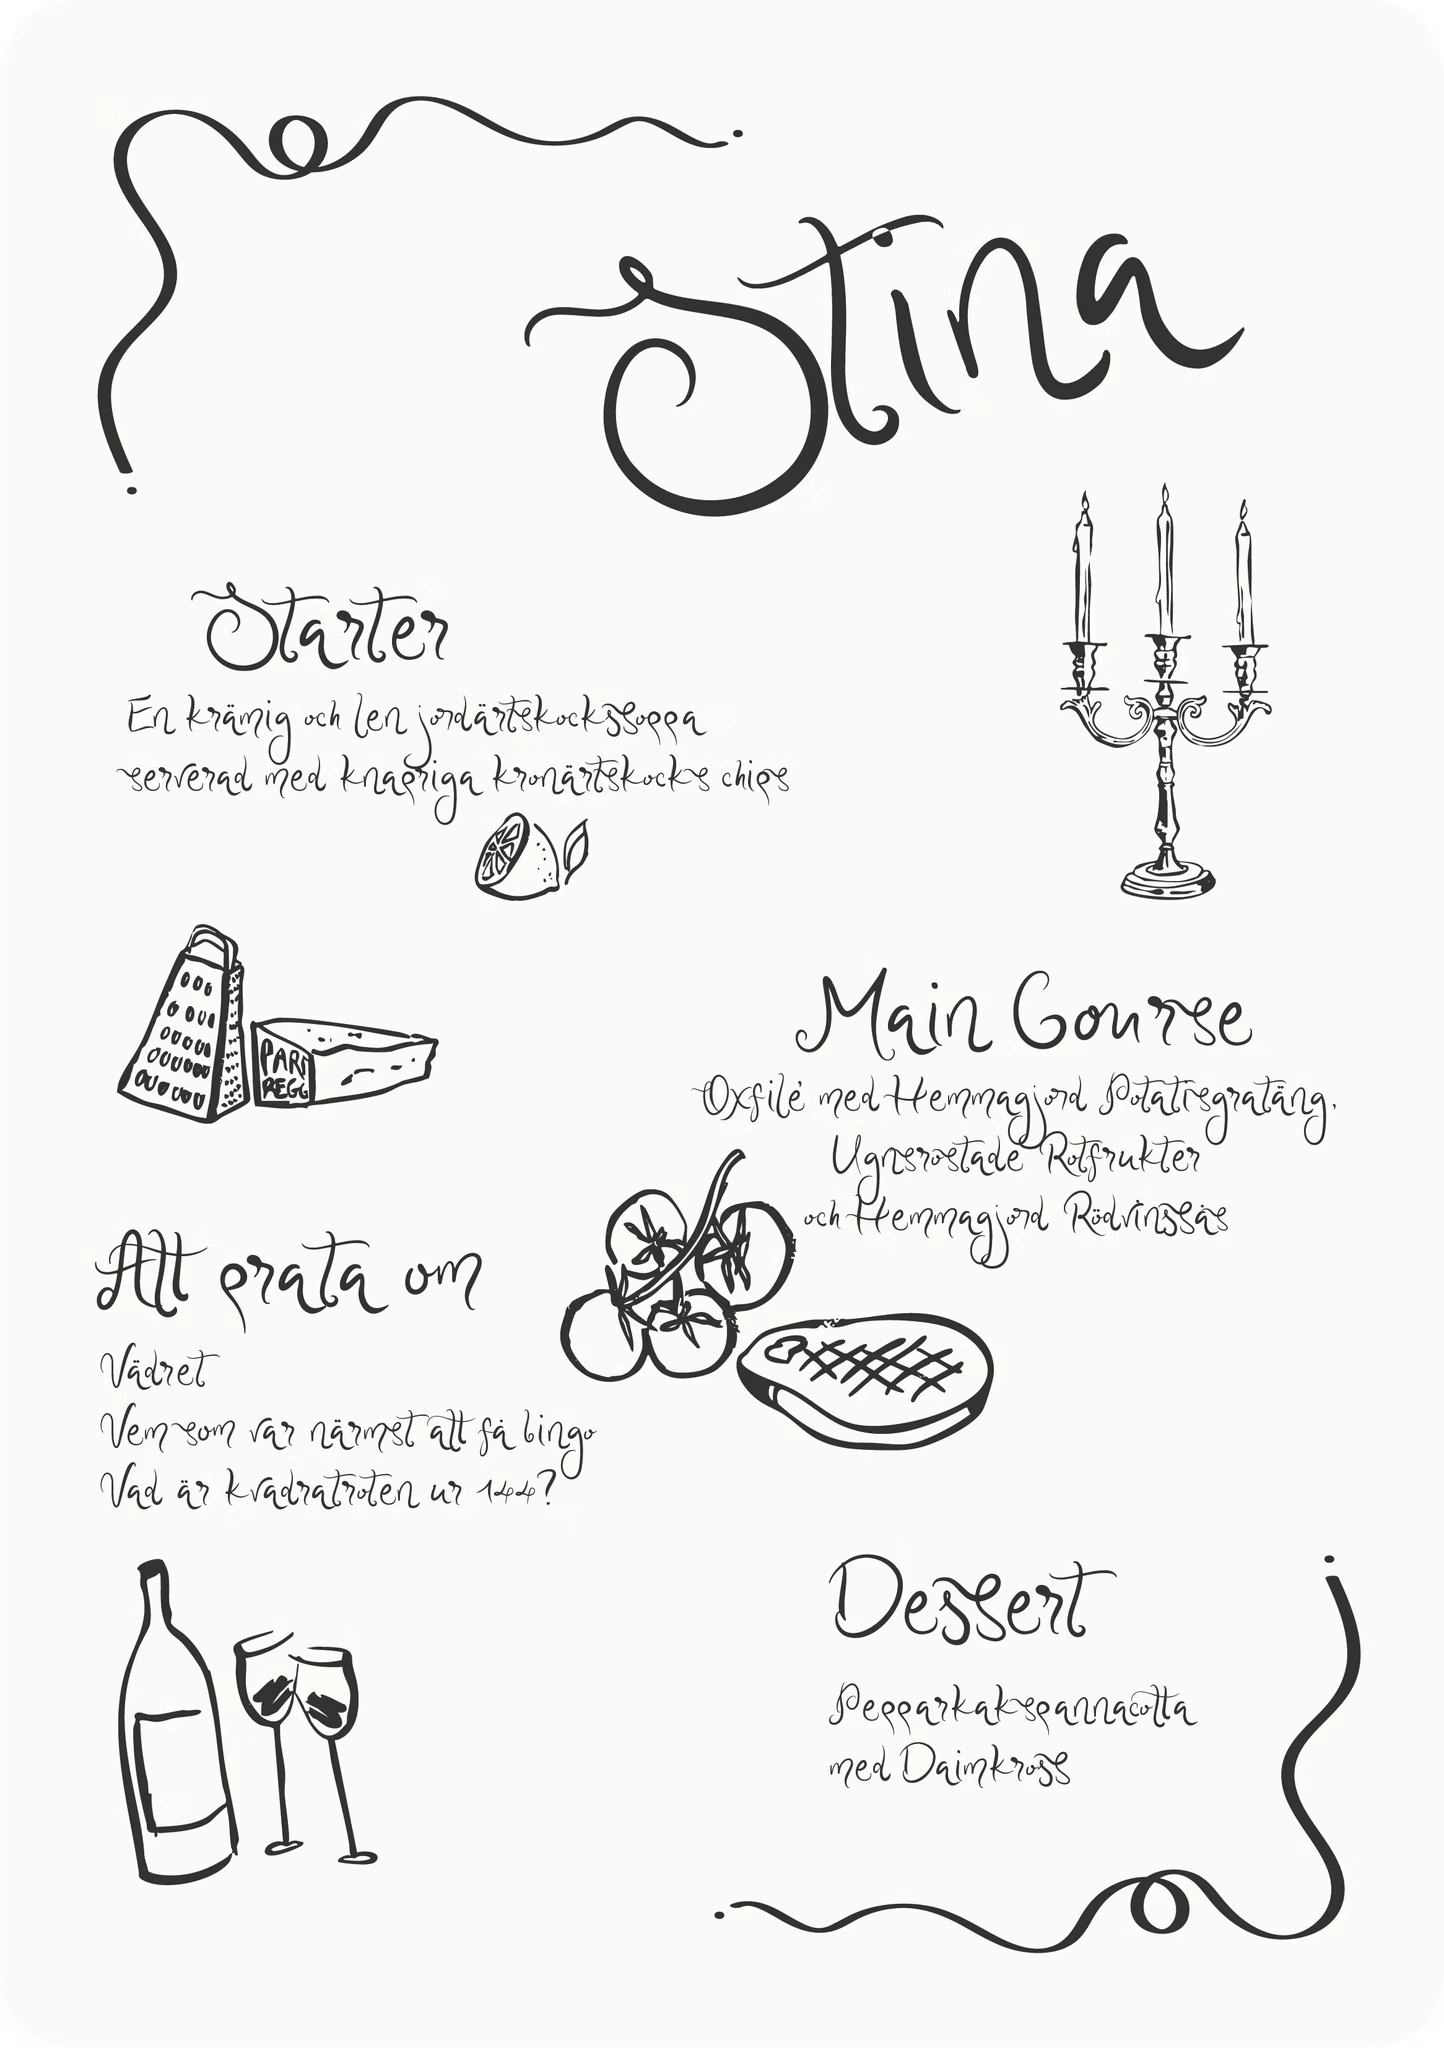 Stina
Starter
En krämig och len jordärtskockssoppa
serverad med knapriga kronärtskocks chips
PARM
REGG
Main Course
Oxfilé med Hemmagjord Potatisgratäng,
Ugnsrostade Rotfrukter
och Hemmagjord Rödvinssås
Att prata om
Vädret
Vem som var närmst att få bingo
Vad är kvadratroten ur 144?
Dessert
Pepparkakspannacotta
med Daimkross